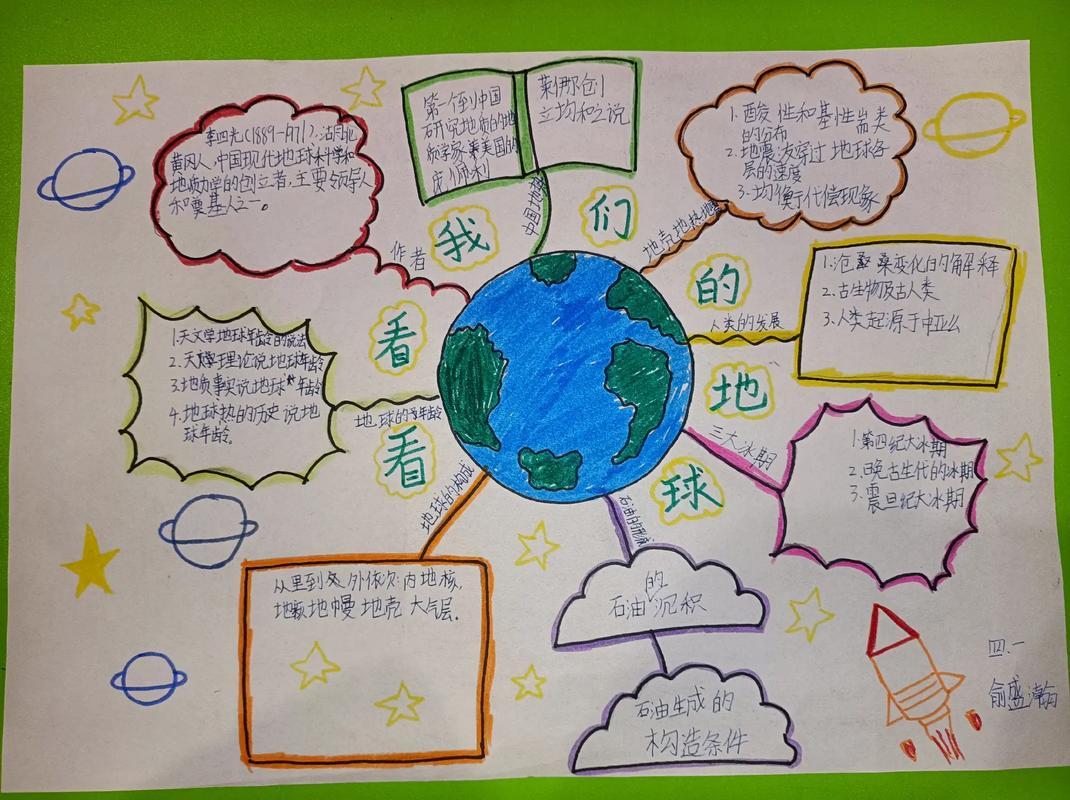 李四光(1889-1971),湖北
黄冈人,中国现代地球科学和
地质力学的创立者,主要领导人
和奠基人之一。
作者
第一个到中国
研究地质的地
质学家 美国的
庞
莱伊尔创
立均和之说
中国地
1.酸性和基性岩类
的分布
2.地震波穿过地球各
层的速度
3.均衡代偿现象
地壳地热
1.沧桑变化的解释
2.古生物及古人类
3.人类起源于中亚么
人类的发展
看看我们的地球
1.天文学地球年龄的说法
2.天文理论说地球年龄
3.地质事实说地球年龄
4.地球热的历史说地
球年龄.
地球的年龄
三大冰期
1.第四纪大冰期
2.晚古生代的冰期
3.震旦纪大冰期
地球的构成
从里到外依次:内地核,
地幔 地壳 大气层.
石油的形成
石油的沉积
石油生成的
构造条件
四.一
俞盛瀚